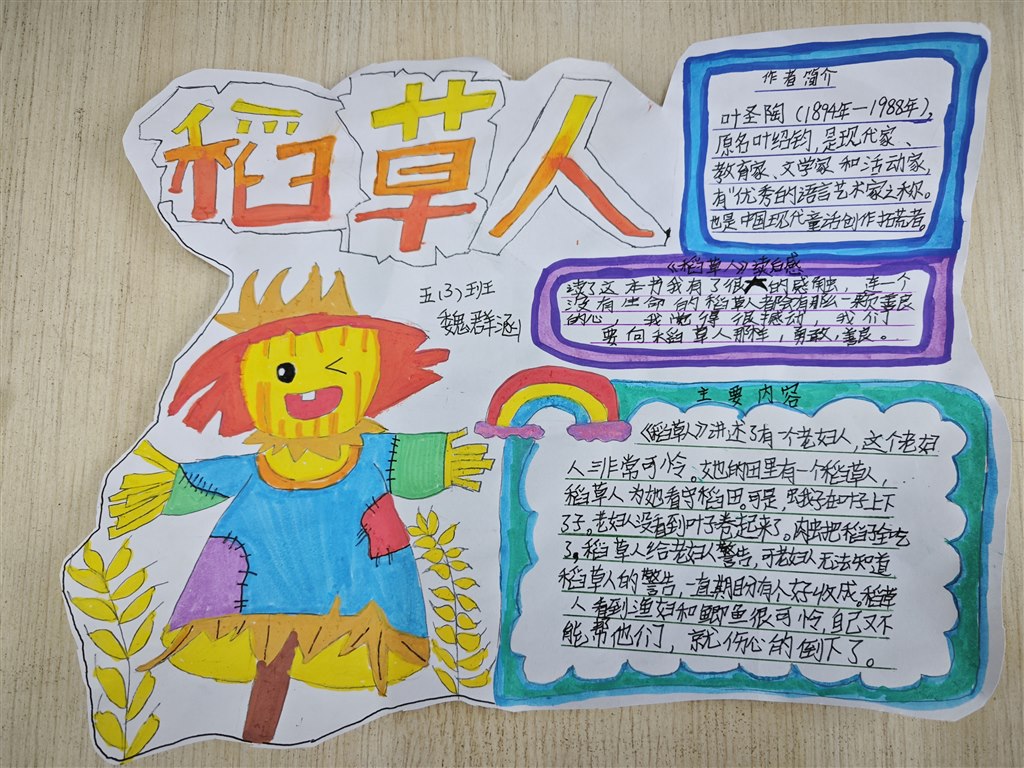 稻草人
五(3)班
魏群涵
作者简介
叶圣陶(1894年—1988年),
原名叶绍钧,是现代家、
教育家、文学家和活动家,
有"优秀的语言艺术家之称。
也是中国现代童话创作拓荒者。
《稻草人》读白感
读了这本书我有了很大的感触,连一个
没有生命的稻草人都会有那么一颗善良
的心,我觉得很撼动,我们
要向稻草人那样,勇敢,善良。
主要内容
《稻草人》讲述了有一个老妇人,这个老妇
人非常可怜。她的田里有一个稻草人,
稻草人为她看守稻田。可是,虫我子在叶子上下
了子,老妇人没看到叶子卷起来了。肉虫把稻子全吃
了,稻草人给老妇人警告,可老妇人无法知道
稻草人的警告,一直期盼有个好收成。稻草
人看到渔妇和鲫鱼很可怜,自己又不
能帮他们,就伤心的倒下了。